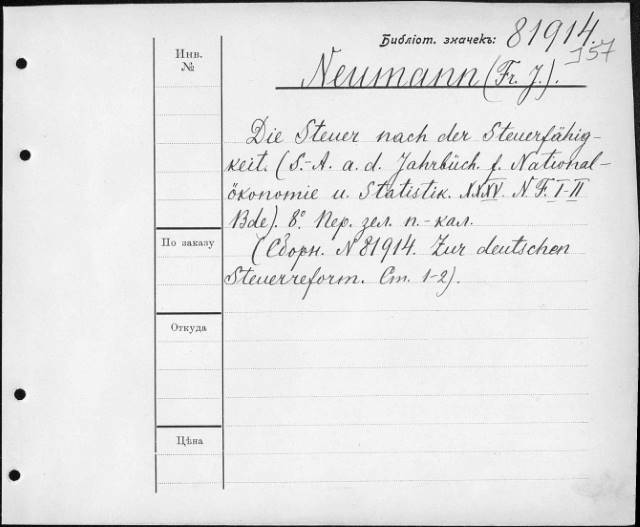 Библіот. значекъ: 81914.
157
Инв.
№
Neumann (Fr. J.).
Die Steuer nach der Steuerfähig-
keit. (S.-A. a. d. Jahrbüch. f. National-
ökonomie u. Statistik. XXXV. N. F. I-II
Bde). 8°. Пер. зел. п.-кал.
(Сборн. N 81914. Zur deutschen
Steuerreform. Ст. 1-2).
По заказу
Откуда
Цѣна